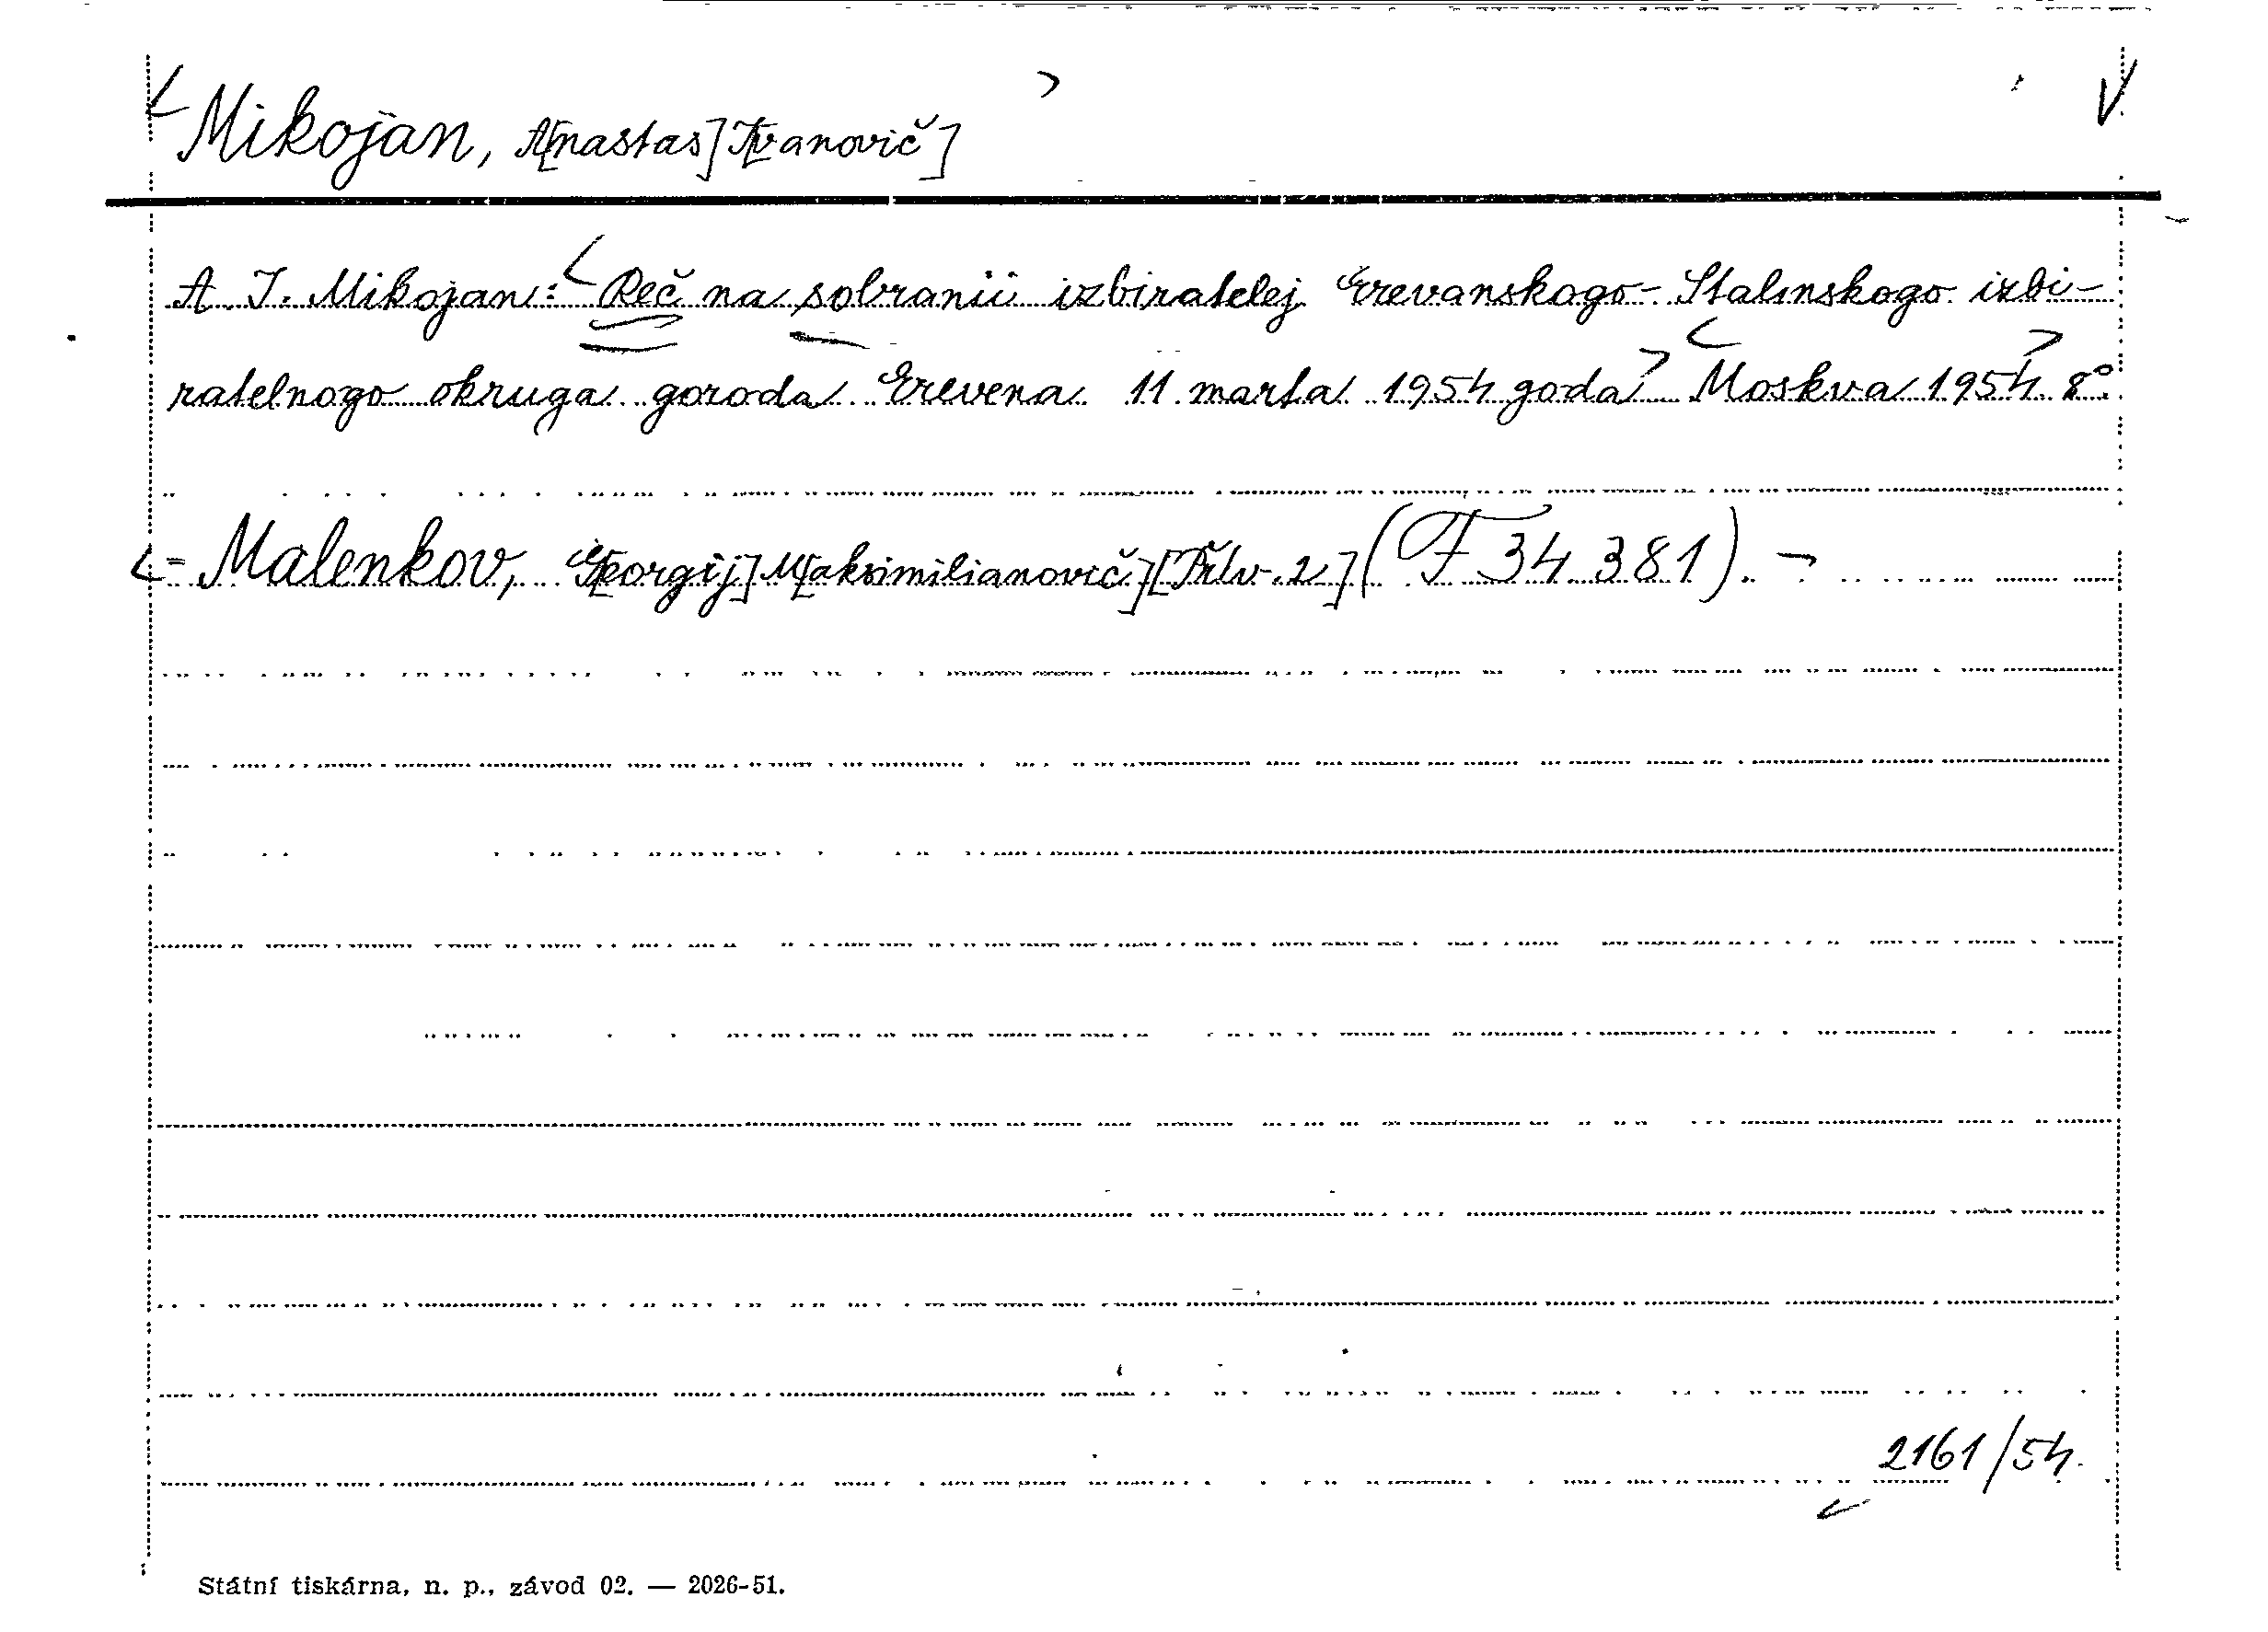 Mikojan, A[nastas] I[vanovič]
A. I. Mikojan: Reč na sobranii izbiratelej Erevanskogo-Stalinskogo izbi-
ratelnogo okruga goroda Erevena 11 marta 1954 goda Moskva 1954. 8°.
= Malenkov, G[eorgij] M[aksimilianovič] [Přív. 2] (F 34 381). -
2161/54.
Státní tiskárna, n. p., závod 02. — 2026-51.